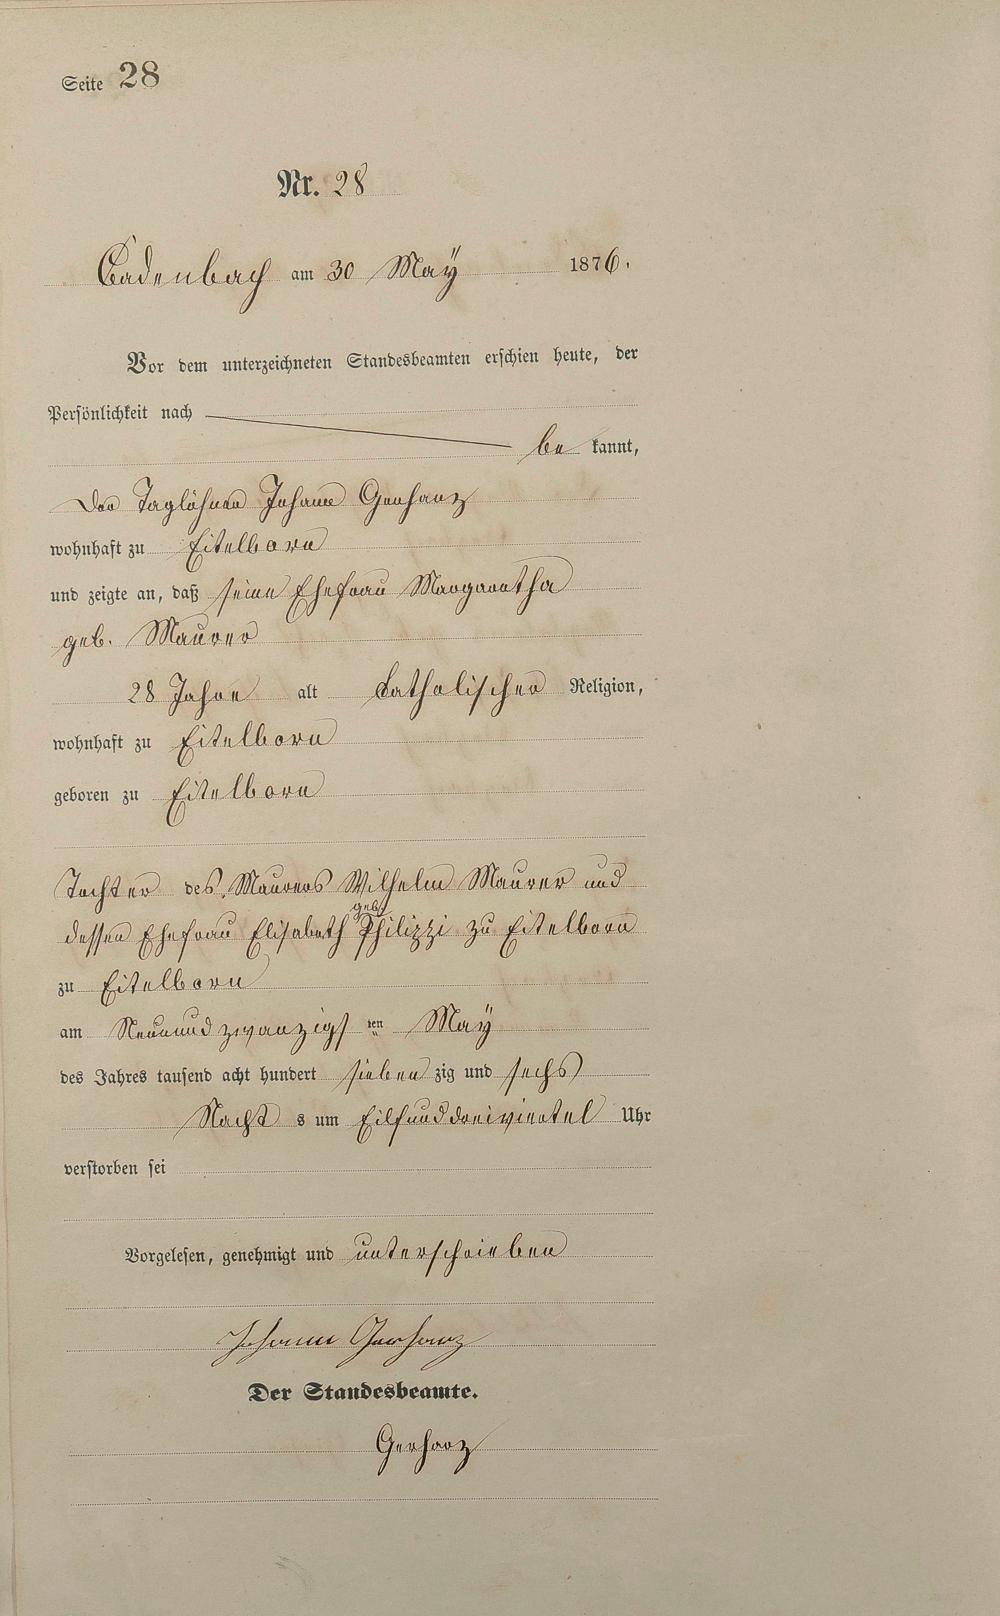 Seite 28
Nr. 28
Cadenbach am 30 Maÿ 1876.
Vor dem unterzeichneten Standesbeamten erschien heute, der
Persönlichkeit nach
be kannt,
der Taglöhner Johann Gerharz
wohnhaft zu Eitelborn
und zeigte an, daß seine Ehefrau Margaretha
geb. Maurer
28 Jahre alt katholischer Religion,
wohnhaft zu Eitelborn
geboren zu Eitelborn
Tochter des Maurers Wilhelm Maurer und
dessen Ehefrau Elisabeth geb. Philippi zu Eitelborn
zu Eitelborn
am Neunundzwanzigs ten Maÿ
des Jahres tausend acht hundert sieben zig und sechs
Nacht s um Eilfunddreiviertel Uhr
verstorben sei
Vorgelesen, genehmigt und unterschrieben
Johann Gerharz
Der Standesbeamte.
Gerharz